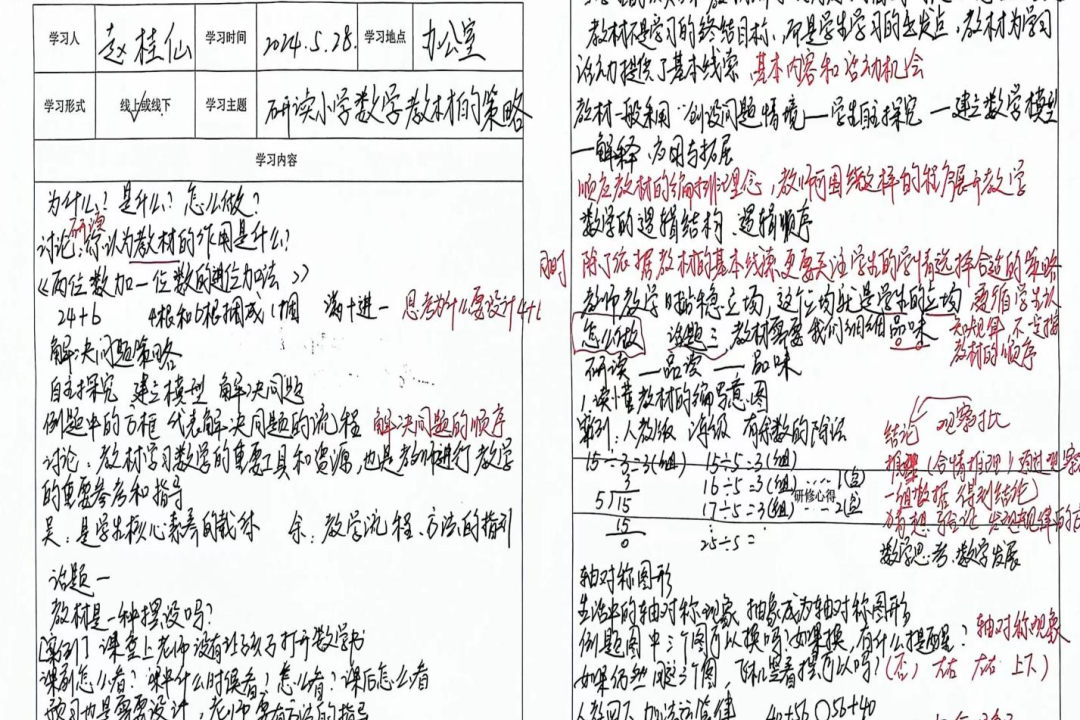 学习人 赵桂仙 学习时间 2024.5.28. 学习地点 办公室
学习形式 线上或线下 学习主题 研读小学数学教材的策略
学习内容
为什么？是什么？怎么做？
研读
讨论：你认为教材的作用是什么？
《两位数加一位数的进位加法》
24+6 4根和6根捆成1捆 满十进一 思考为什么要设计4+6
解决问题策略
自主探究 建立模型 解决问题
例题中的方框 代表解决问题的流程 解决问题的顺序
讨论：教材学习数学的重要工具和资源，也是教师进行教学
的重要参考和指导
吴：是学生核心素养的载体 余：教学流程、方法的指引
话题一
教材是一种摆设吗？
[案例] 课堂上老师没有让孩子打开数学书
课前怎么看？课中什么时候看？怎么看？课后怎么看
预习也是需要设计，老师要有方法的指导
教材不是学习的终结目标，而是学生学习的出发点，教材为学习
活动提供了基本线索 基本内容和活动机会
教材一般采用“创设问题情境—学生自主探究—建立数学模型
—解释、应用与拓展
顺应教材的编排理念，教师可围绕这样的程序展开教学
数学的逻辑结构、逻辑顺序
同时 除了依据教材的基本线索更要关注学生的学情选择合适的策略
教师教学时站稳立场，这个立场就是学生的立场 要循学生认
知规律，不直接
教材的顺序
怎么做 话题三：教材需要我们细细品味
研读——品读——品味
1.读懂教材的编写意图
案例：人教版 二年级 有余数的除法
结论 观察对比
15÷3=3(组) 15÷5=3(组)
推理（合情推理）通过观察
16÷5=3(组)……1(自)
一组数据 得到结论
研修心得
17÷5=3(组)……2(自)
猜想 验证 发现规律
3
5)15
15
0
25÷5=
数学思考、数学发展
轴对称图形
生活中的轴对称现象 抽象成为轴对称图形
例题图中三个图可以换吗？如果换，有什么提醒？ 轴对称现象
如果仍然用这三个图，飞机竖着摆可以吗？（否）左右 左右 上下）
加法运算律 40+56○56+40